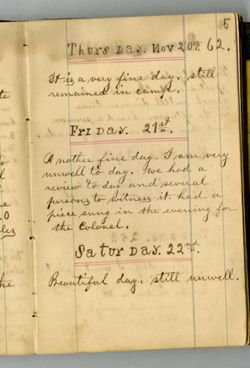 5
Thursday. Nov 20th, 62.
It is a very fine day. still
remained in camp.
Friday. 21st.
Another fine day. I am very
unwell to day. We had a
review to day and several
persons to witness it. had a
piece sung in the evening for
the Colonel.
Saturday. 22nd.
Beautiful day. still unwell.